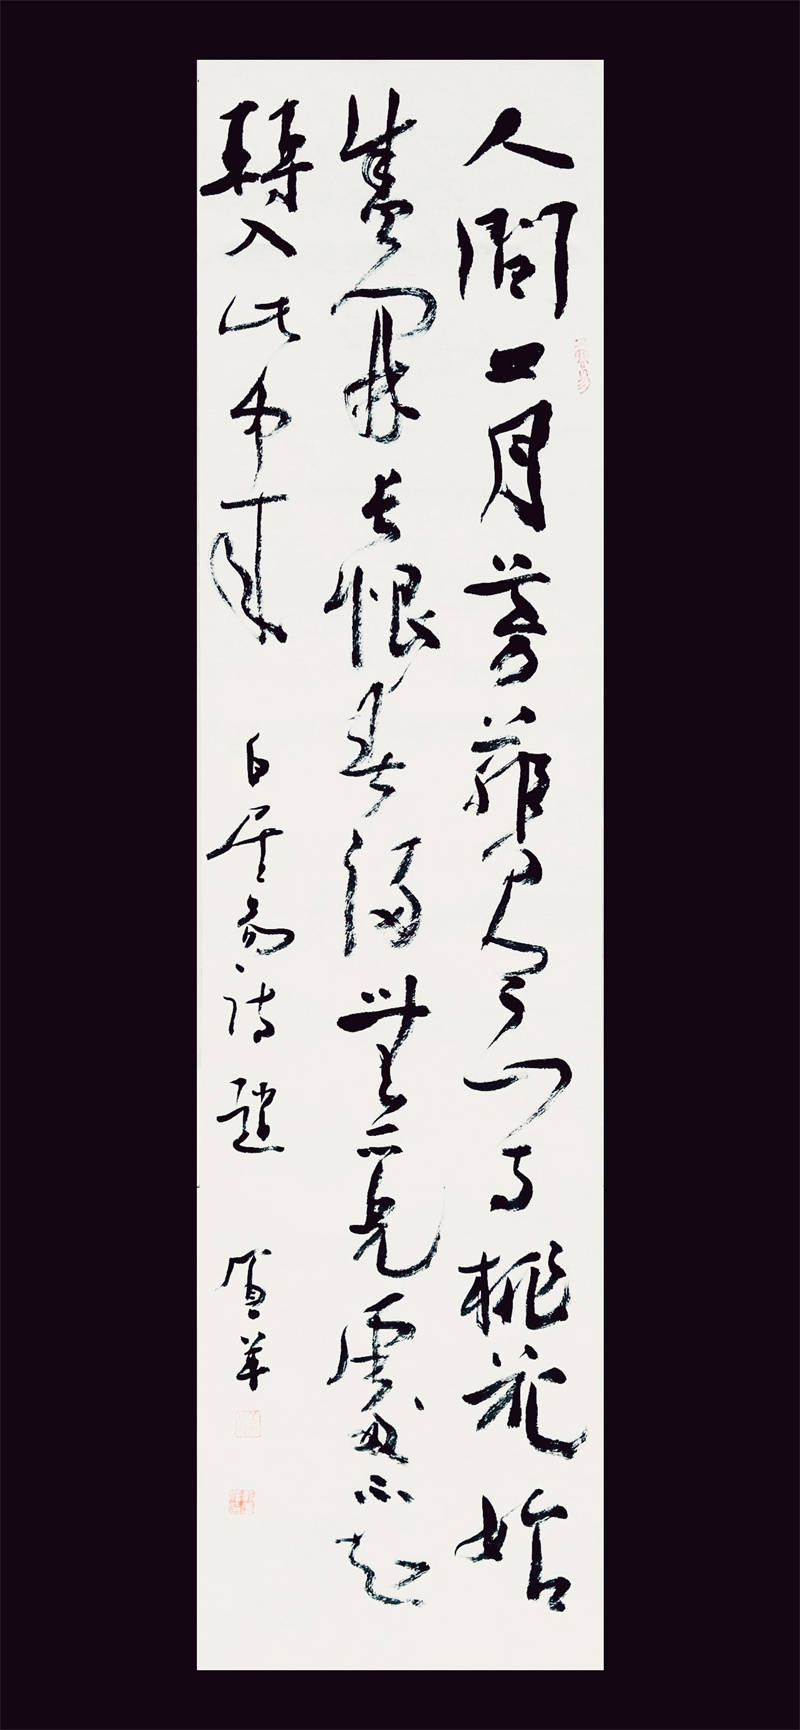 人間四月芳菲盡山寺桃花始
盛開長恨春歸無覓處不知
轉入此中來 白居易詩 趙